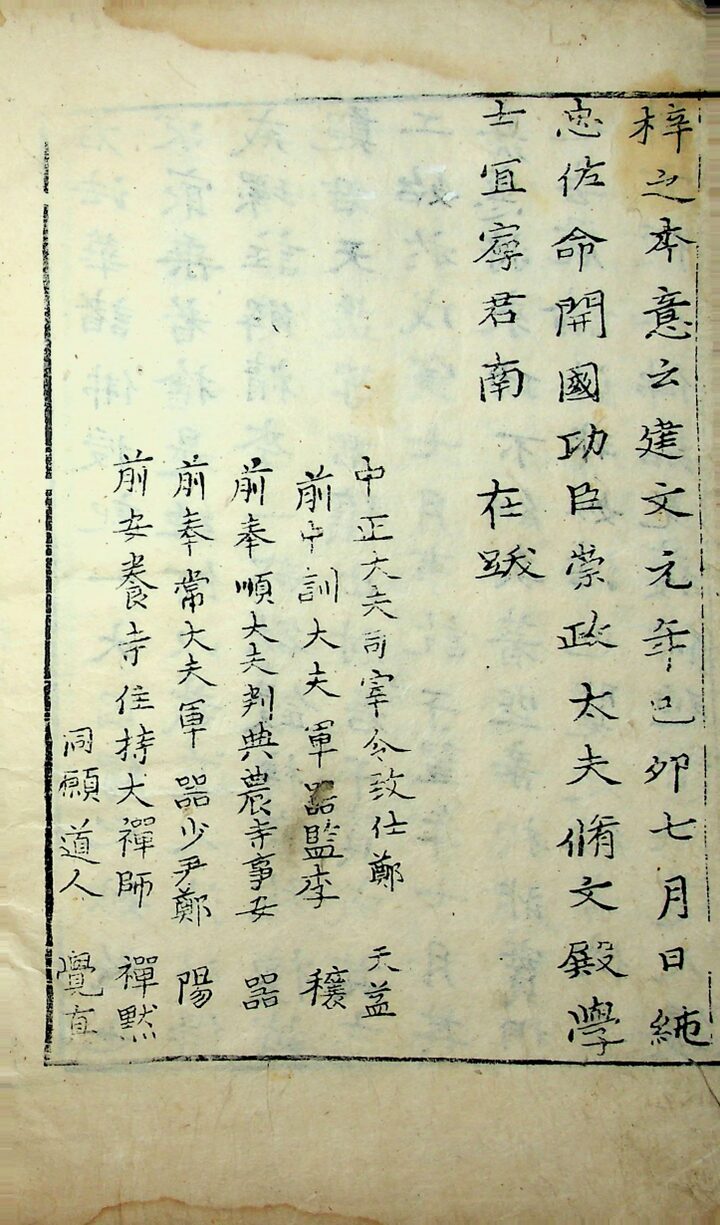 梓之本意云建文元年己卯七月日純
忠佐命開國功臣崇政太夫脩文殿學
士宜寧君南 在跋
中正大夫司宰令致仕鄭 天益
前中訓大夫軍器監李 穰
前奉順大夫判典農寺事安 器
前奉常大夫軍器少尹鄭 陽
前安養寺住持大禪師 禪黙
同願道人 覺直